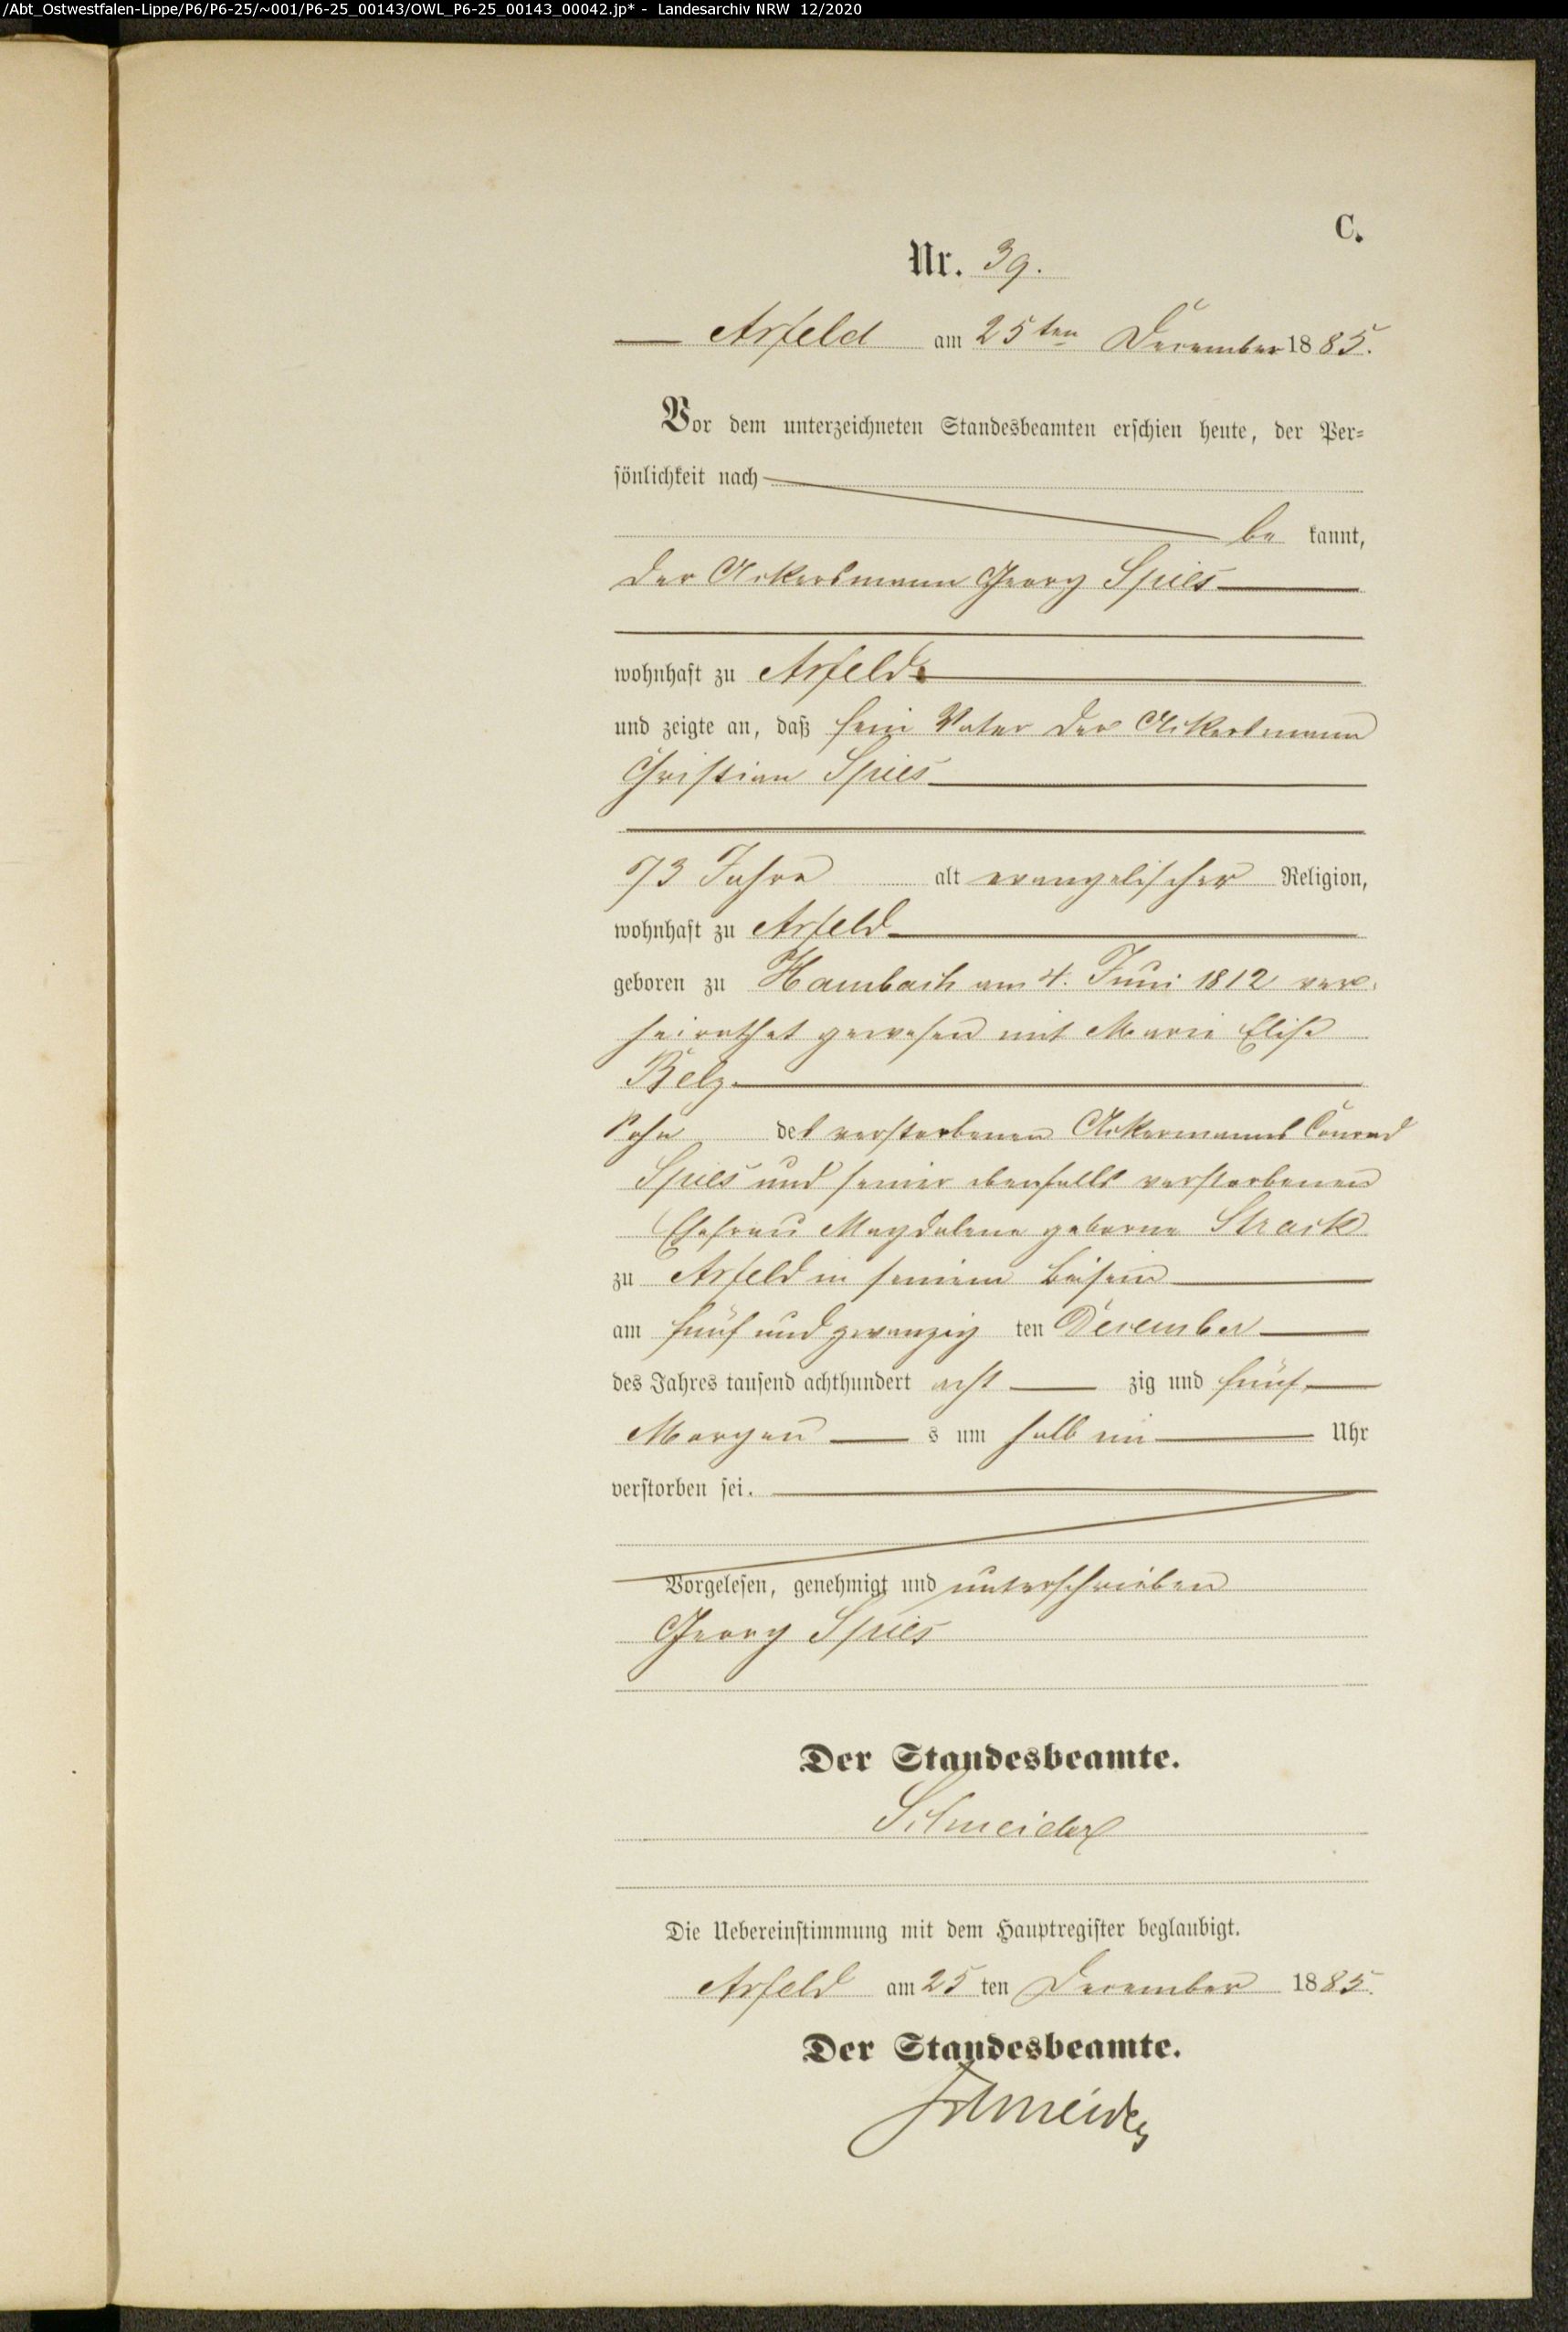 /Abt_Ostwestfalen-Lippe/P6/P6-25/~001/P6-25_00143/OWL_P6-25_00143_00042.jp* - Landesarchiv NRW 12/2020
C.
Nr. 39.
Arfeld am 25ten December 1885.
Vor dem unterzeichneten Standesbeamten erschien heute, der Per-
sönlichkeit nach
be kannt,
der Ackersmann Georg Spies
wohnhaft zu Arfeld
und zeigte an, daß sein Vater der Ackersmann
Christian Spies
73 Jahre alt evangelischer Religion,
wohnhaft zu Arfeld
geboren zu Hambach am 4. Juni 1812 ver-
heirathet gewesen mit Marie Elise
Belz.
Sohn des verstorbenen Ackermanns Conrad
Spies und seiner ebenfalls verstorbenen
Ehefrau Magdalena geborne Strack
zu Arfeld in seinem Beisein
am fünf und zwanzig ten December
des Jahres tausend achthundert acht zig und fünf
Morgen s um halb ein Uhr
verstorben sei.
Vorgelesen, genehmigt und unterschrieben
Georg Spies
Der Standesbeamte.
Schneider
Die Uebereinstimmung mit dem Hauptregister beglaubigt.
Arfeld am 25 ten December 1885.
Der Standesbeamte.
Schneider